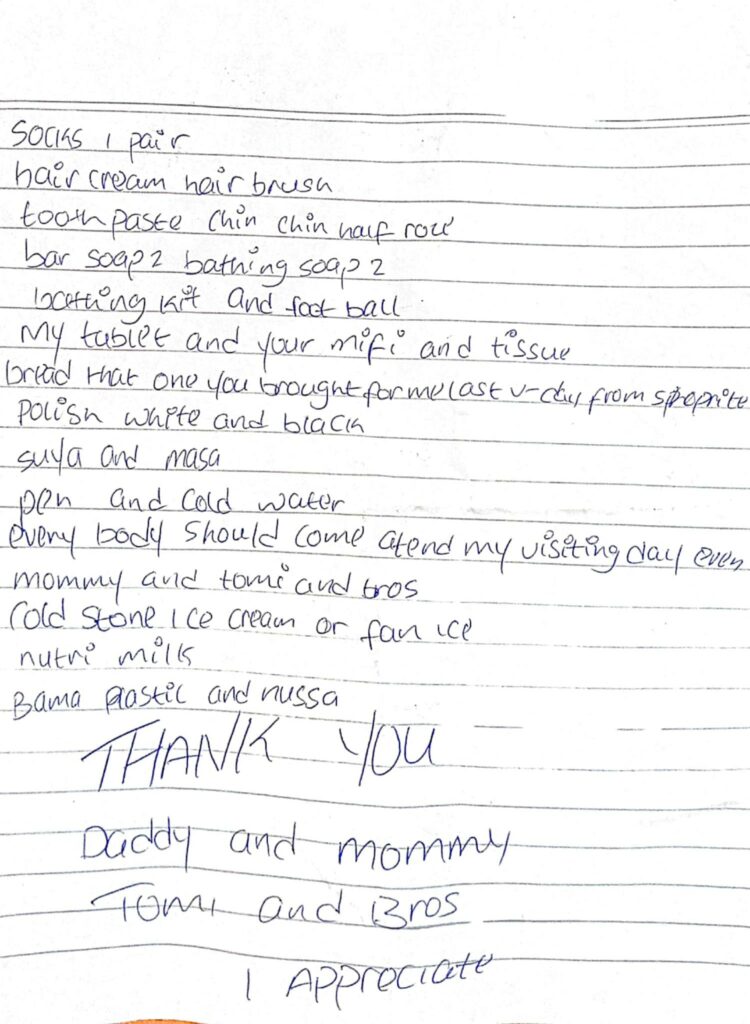 Socks 1 pair
hair cream hair brush
toothpaste chin chin half roll
bar soap 2 bathing soap 2
kit and foot ball
My tablet and your mifi and tissue
bread that one you brought for me last v-day from
polish white and black
suya and masa
pen and cold water
every body should come atend my visiting day even
mommy and tomi and bros
Cold stone ice cream or fan ice
nutri milk
Bama plastic and nussa
THANK YOU
Daddy and mommy
Tomi and Bros
I Appreciate